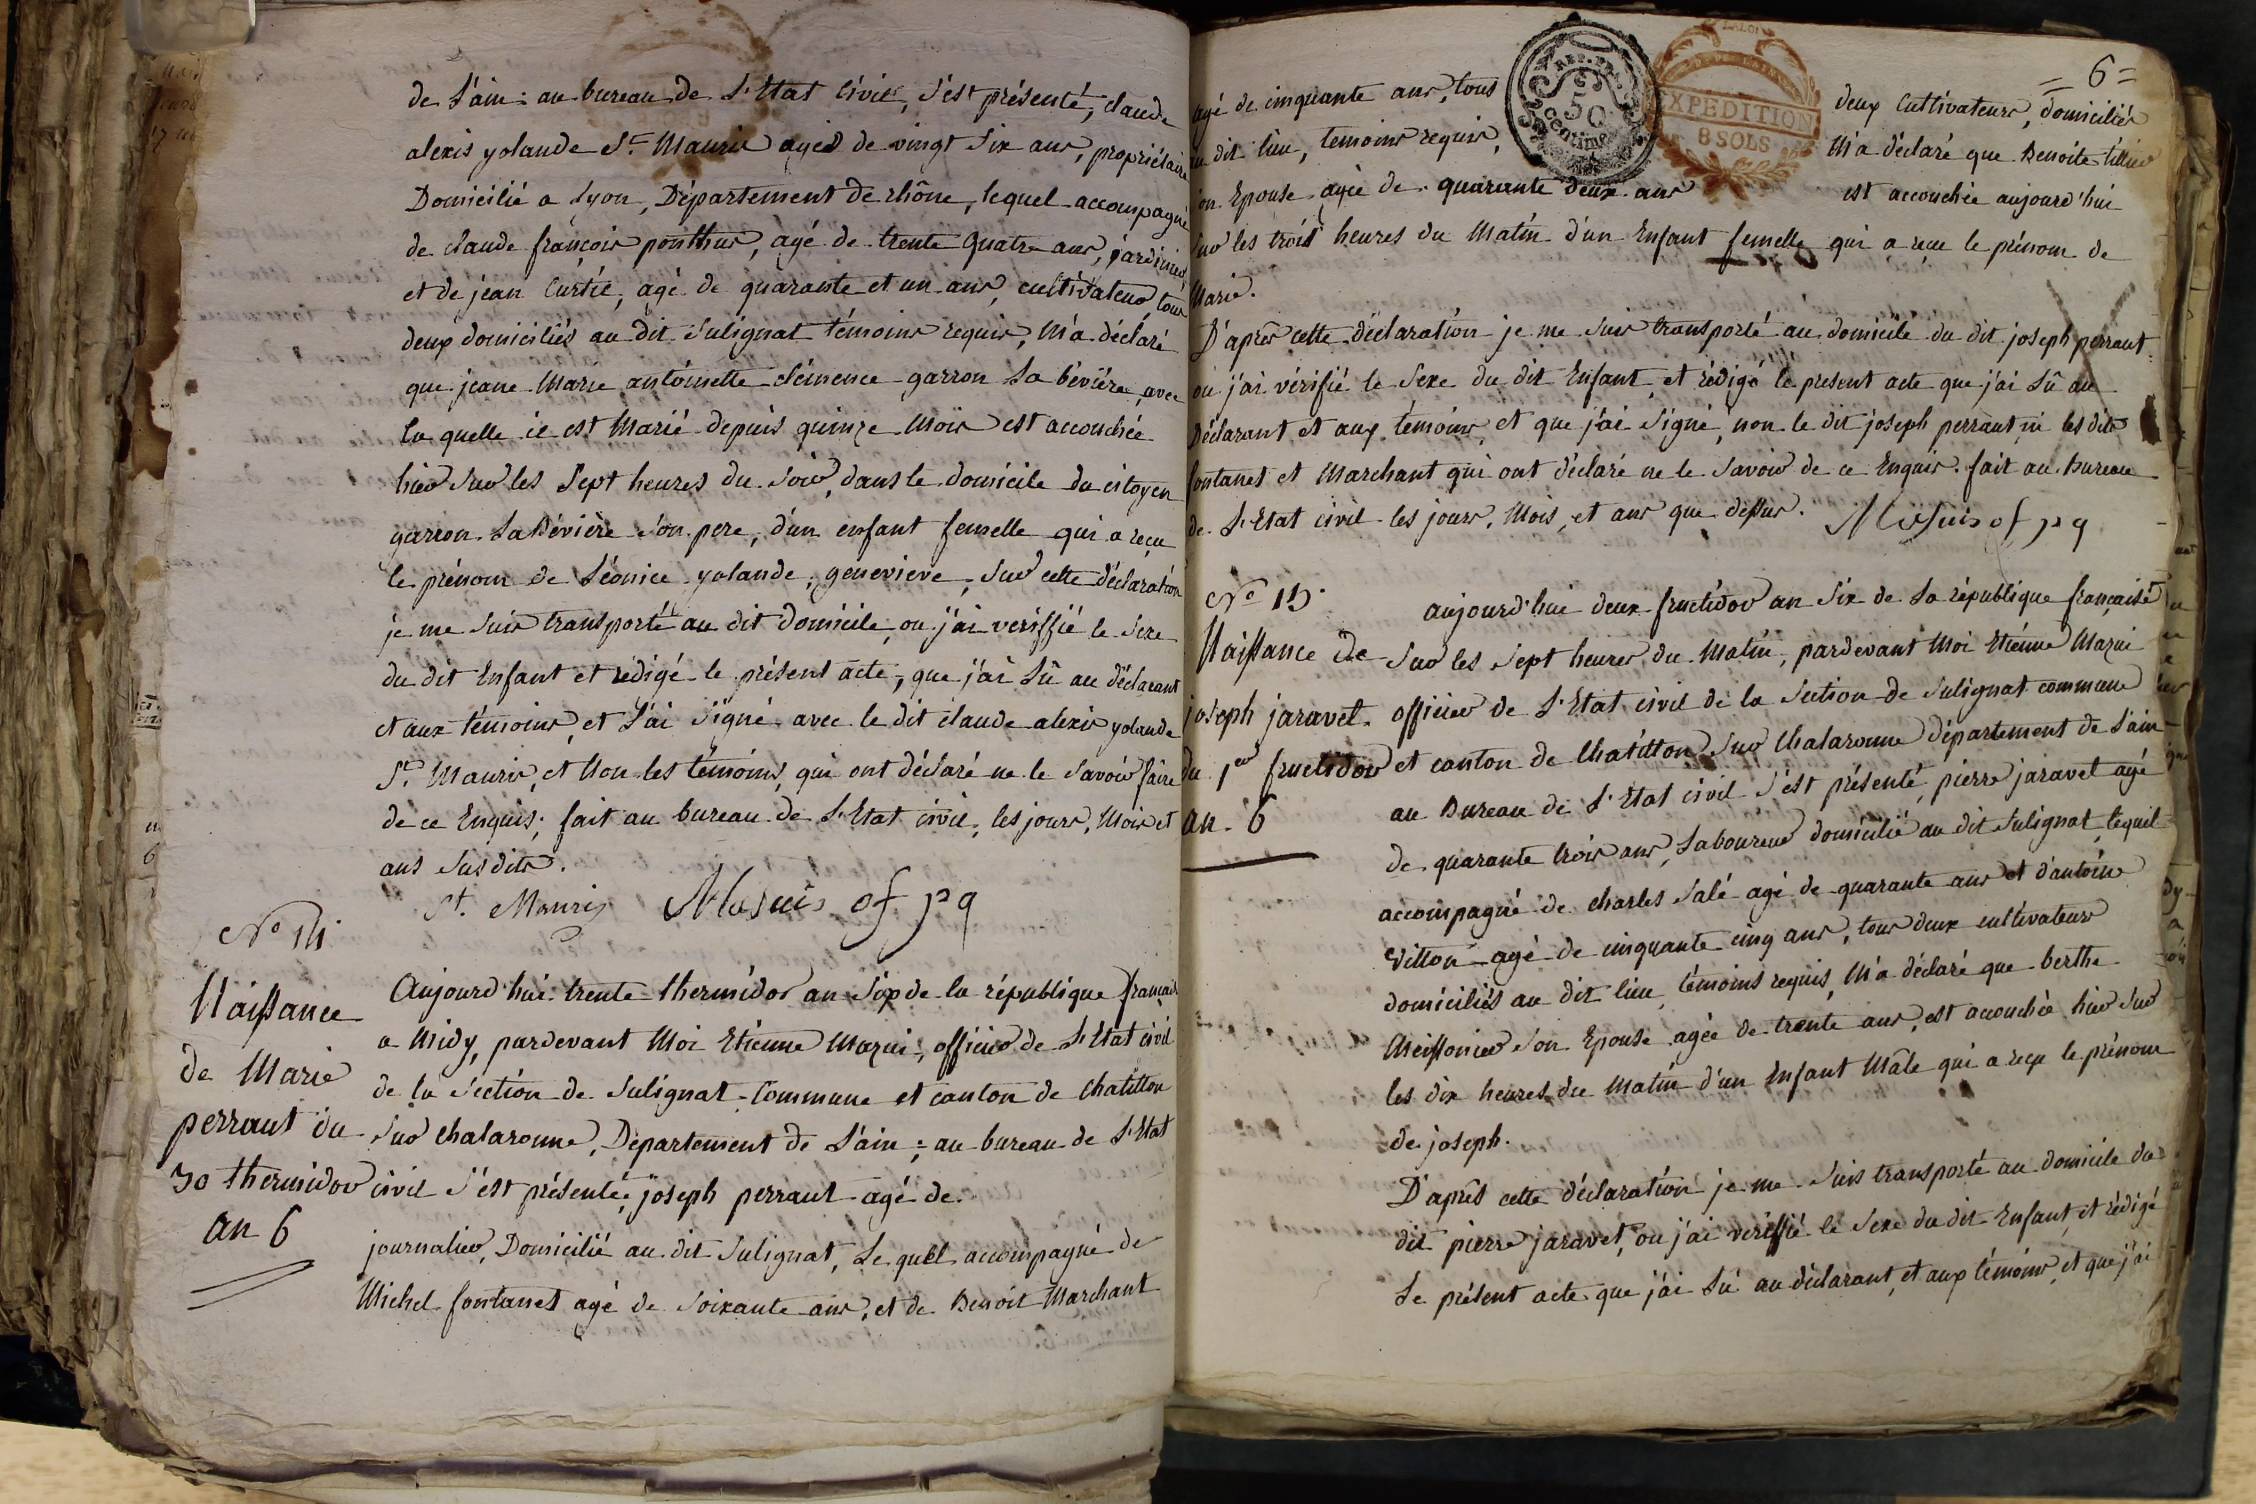 de L'ain: au bureau de L'Etat Civil, s'est présenté, claude
alexis yolande St. Mauris agés de vingt Six ans, propriétaire
Domicilié a Lyon, Département de rhône, lequel accompagné
de claude françois ponthus, agé de trente quatre ans, jardinier,
et de jean Curtié, agé de quarante et un ans, cultivateur tous
deux domiciliés au dit Sulignat témoins requis, M'a déclaré
que jeane Marie antoinette clémence garron La bévière, avec
la quelle ie est Marié depuis quinze Mois est accouchée
hier sur les Sept heures du Soir, dans le domicile du citoyen
garron La Bévière son pere, d'un enfant femelle qui a reçu
le prénom de Léonice yolande, genevieve, Sur cette déclaration
je me suis transporté au dit domicile, ou j'ai veriffié le Sexe
du dit Enfant et rédigé le présent acte, que j'ai Lû au déclarant
et aux témoins, et L'ai Signé avec le dit claude alexis yolande
St. Mauris, et Non les témoins, qui ont déclaré ne le Savoir faire
de ce Enquis; fait au bureau de L'Etat civil, les jours, Mois et
ans Susdits.
St. Mauris Mazui of p q
No 14
Naissance
de Marie
perraut du
30 thermidor
an 6
Aujourd'hui trente thermidor an Six de la république français
a Midy, pardevant Moi Etienne Mazui, officier de L'Etat civil
de la Section de Sulignat Commune et canton de Chatillon
Sur chalaronne, Département de L'ain; au bureau de L'Etat
civil s'est présenté, joseph perraut agé de
journalier, Domicilié au dit Sulignat, Le quel accompagné de
Michel fontanet agé de Soixante ans, et de Benoit Marchant
= 6 =
REP. FRA.
50
centime
LA LOI
EXPEDITION
8 SOLS
agé de cinquante ans, tous deux Cultivateurs, domiciliés
au dit lieu, temoins requis, M'a déclaré que Benoite
son Epouse agée de quarante deux ans est accouchée aujourd'hui
sur les trois heures du Matin d'un Enfant femelle qui a reçu le prénom de
Marie.
D'après cette déclaration je me Suis transporté au domicile du dit joseph perraut
ou j'ai vérifié le Sexe du dit Enfant, et rédigé le present acte que j'ai Lû au
Déclarant et aux témoins, et que j'ai Signé, non le dit joseph perraut ni les dits
fontanet et Marchant qui ont déclaré ne le Savoir de ce Enquis. fait au Bureau
de L'Etat civil les jours, Mois, et ans que dessus. Mazui of p q
No 15
Naissance de
joseph jaravel
du 1er fructidor
an 6
aujourd'hui deux fructidor an Six de La république française
Sur les Sept heures du Matin, pardevant Moi Etienne Mazui
officier de L'Etat civil de la Section de Sulignat commune
et canton de Chatillon Sur Chalaronne département de L'ain
au Bureau de L'Etat civil s'est présenté, pierre jaravel agé
de quarante trois ans, Laboureur domicilié au dit Sulignat, lequel
accompagné de charles Salé agé de quarante ans et d'antoine
vitton agé de cinquante cinq ans, tous deux cultivateurs
domiciliés au dit lieu, témoins requis, M'a déclaré que berthe
Meissonier Son Epouse agée de trente ans, est accouchée hier Sur
les dix heures du Matin d'un Enfant Mâle qui a reçu le prénom
de joseph.
D'après cette déclaration je me Suis transporté au domicile du
dit pierre jaravel, ou j'ai vériffié le Sexe du dit Enfant, et rédigé
Le présent acte que j'ai Lû au déclarant, et aux témoins, et que j'ai